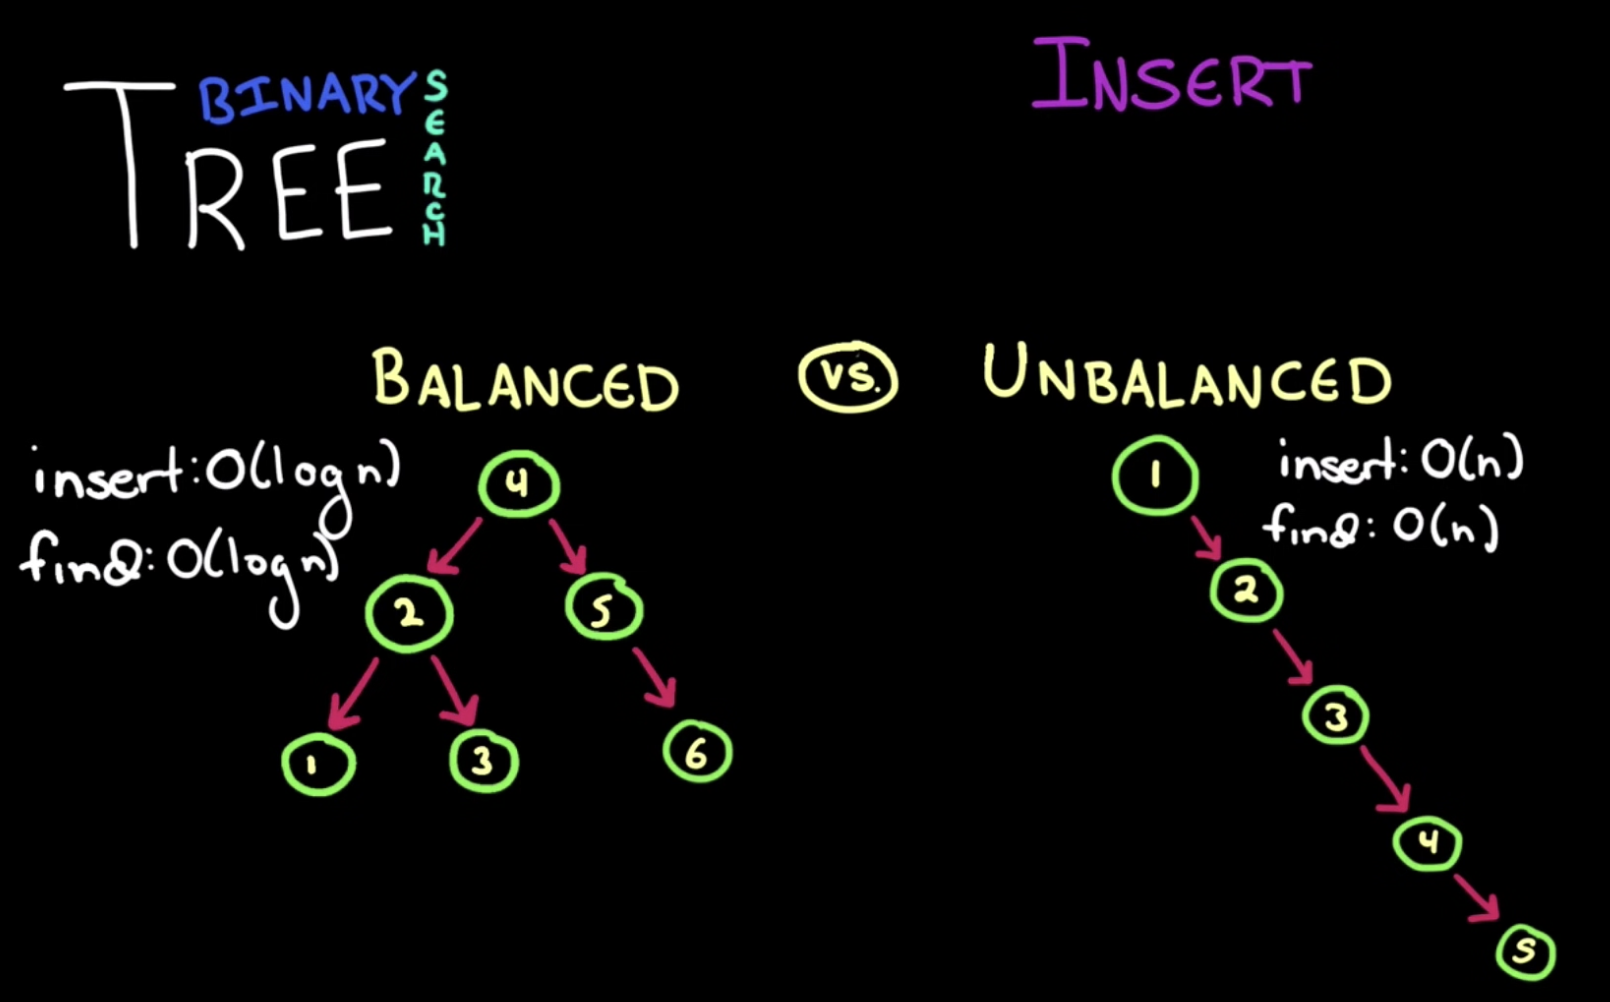 BINARY
TREE
SEARCH
INSERT
BALANCED
VS.
UNBALANCED
insert: O(log n)
find: O(log n)
4
2
5
1
3
6
insert: O(n)
find: O(n)
1
2
3
4
5